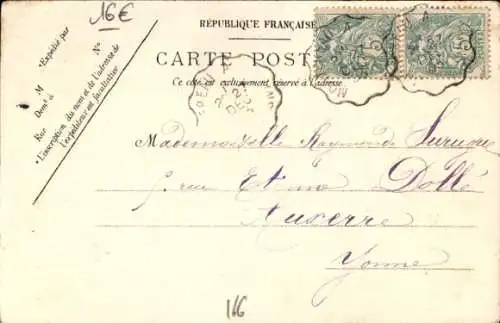 16€
RÉPUBLIQUE FRANÇAISE
CARTE POST
Ce côté est exclusivement réservé à l'adresse
Expédié par
M N°
Dom^t à
Rue
L'inscription du nom et de l'adresse de
l'expéditeur est facultative
5 5
Mademoiselle Raymonde
rue Etienne Dollé
Auxerre
Yonne
116